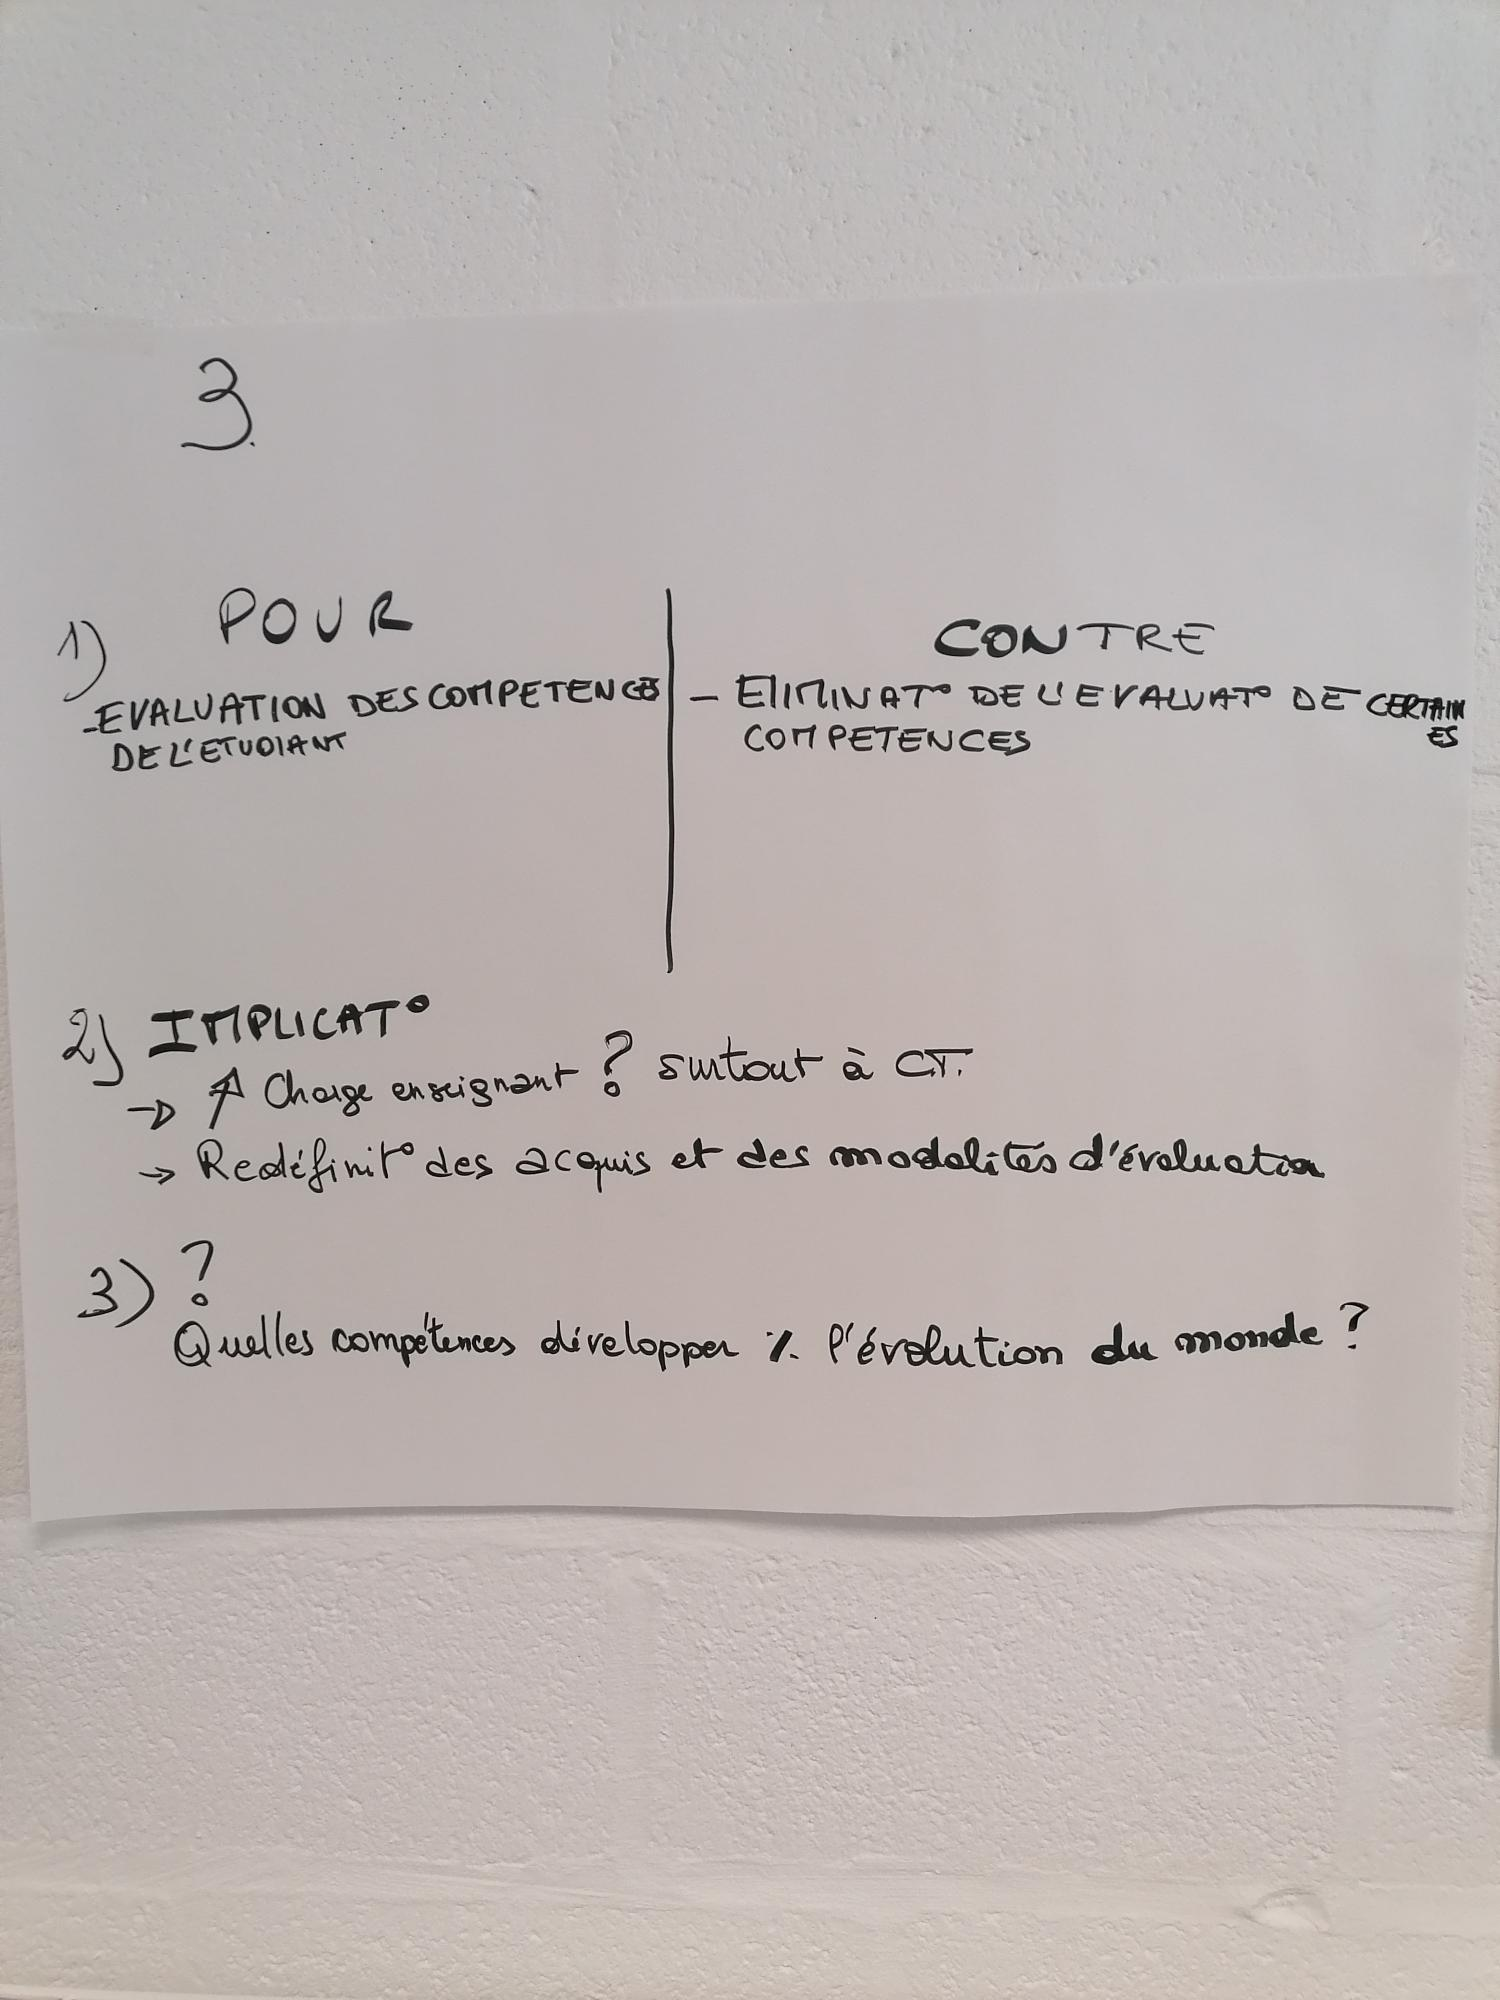 3.
1) POUR
CONTRE
- EVALUATION DES COMPETENCES
DE L'ETUDIANT
- ELIMINAT° DE L'EVALUAT° DE CERTAIN
ES
COMPETENCES
2) IMPLICAT°
→ ↗ Charge enseignant ? surtout à C.T.
→ Redéfinit° des acquis et des modalités d'évaluation
3) ?
Quelles compétences développer ٪ l'évolution du monde ?